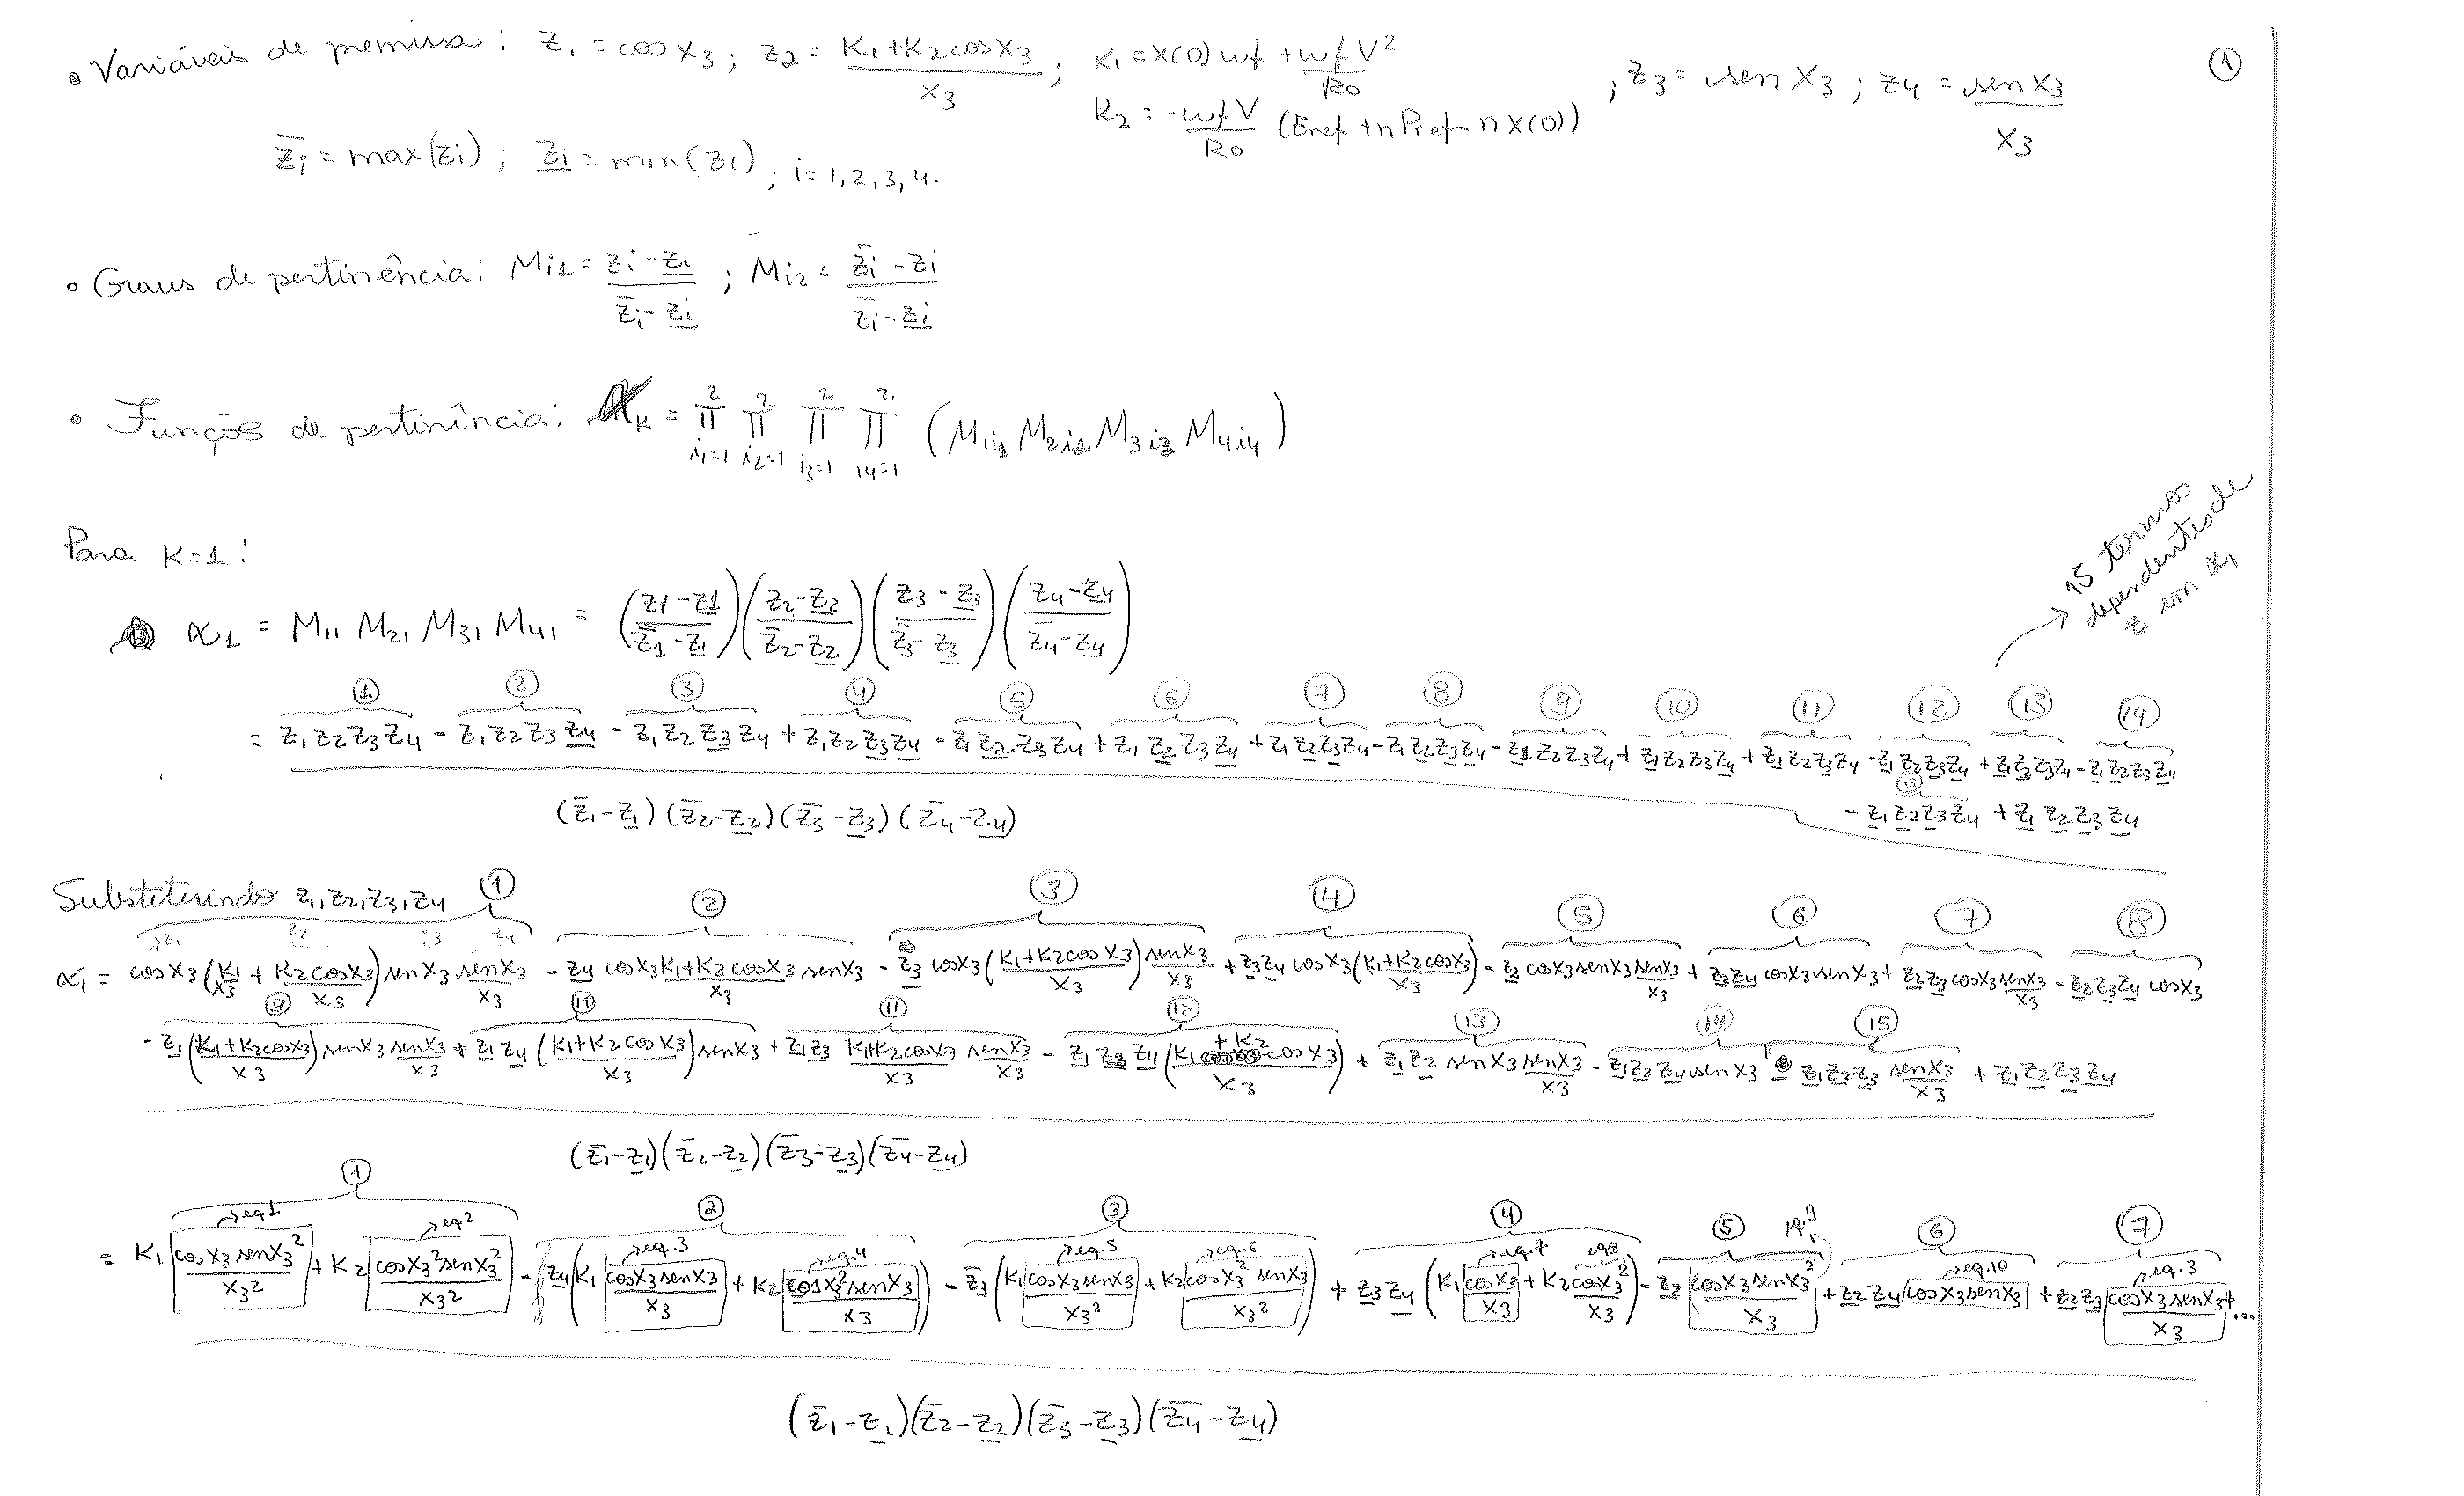 • Variáveis de premissa: z₁ = cos x₃; z₂ = (K₁+K₂cosx₃)/x₃; K₁ = X(0)wf + wfV²/R₀ ; z₃ = sen x₃; z₄ = sen x₃/x₃ ①
K₂ = -wfV/R₀ (Eref + nPref - nX(0))
z̄i = max(zi); z̲i = min(zi); i = 1,2,3,4.
• Graus de pertinência: Mi1 = (zi - z̲i)/(z̄i - z̲i); Mi2 = (z̄i - zi)/(z̄i - z̲i)
• Funções de pertinência: αk = Π(i₁=1→2) Π(i₂=1→2) Π(i₃=1→2) Π(i₄=1→2) (M1i₁ M2i₂ M3i₃ M4i₄)
Para K=1:
α₁ = M₁₁ M₂₁ M₃₁ M₄₁ = ((z₁-z̲₁)/(z̄₁-z̲₁))((z₂-z̲₂)/(z̄₂-z̲₂))((z₃-z̲₃)/(z̄₃-z̲₃))((z₄-z̲₄)/(z̄₄-z̲₄))
→ 15 termos
dependentes de
z em α₁
① ② ③ ④ ⑤ ⑥ ⑦ ⑧ ⑨ ⑩ ⑪ ⑫ ⑬ ⑭
= z₁z₂z₃z₄ - z₁z₂z₃z̲₄ - z₁z₂z̲₃z₄ + z₁z₂z̲₃z̲₄ - z₁z̲₂z₃z₄ + z₁z̲₂z₃z̲₄ + z₁z̲₂z̲₃z₄ - z₁z̲₂z̲₃z̲₄ - z̲₁z₂z₃z₄ + z̲₁z₂z₃z̲₄ + z̲₁z₂z̲₃z₄ - z̲₁z₂z̲₃z̲₄ + z̲₁z̲₂z₃z₄ - z̲₁z̲₂z₃z̲₄
⑮
- z̲₁z̲₂z̲₃z₄ + z̲₁z̲₂z̲₃z̲₄
(z̄₁-z̲₁)(z̄₂-z̲₂)(z̄₃-z̲₃)(z̄₄-z̲₄)
Substituindo z₁,z₂,z₃,z₄ ① ② ③ ④ ⑤ ⑥ ⑦ ⑧
z₁ z₂ z₃ z₄
α₁ = cos x₃ (K₁/x₃ + K₂cosx₃/x₃) sen x₃ senx₃/x₃ - z̲₄ cosx₃ (K₁+K₂cosx₃)/x₃ senx₃ - z̲₃ cosx₃ ((K₁+K₂cosx₃)/x₃) senx₃/x₃ + z̲₃z̲₄ cosx₃ ((K₁+K₂cosx₃)/x₃) - z̲₂ cosx₃ senx₃ senx₃/x₃ + z̲₂z̲₄ cosx₃ senx₃ + z̲₂z̲₃ cosx₃ senx₃/x₃ - z̲₂z̲₃z̲₄ cosx₃
⑨ ⑩ ⑪ ⑫ ⑬ ⑭ ⑮
- z̲₁((K₁+K₂cosx₃)/x₃) senx₃ senx₃/x₃ + z̲₁z̲₄((K₁+K₂cosx₃)/x₃) senx₃ + z̲₁z̲₃ (K₁+K₂cosx₃)/x₃ senx₃/x₃ - z̲₁z̲₃z̲₄((K₁+K₂cosx₃)/x₃) + z̲₁z̲₂ senx₃ senx₃/x₃ - z̲₁z̲₂z̲₄ senx₃ - z̲₁z̲₂z̲₃ senx₃/x₃ + z̲₁z̲₂z̲₃z̲₄
(z̄₁-z̲₁)(z̄₂-z̲₂)(z̄₃-z̲₃)(z̄₄-z̲₄)
① ② ③ ④ ⑤ ⑥ ⑦
eq1 eq2 eq.3 eq.4 eq.5 eq.6 eq.7 eq8 eq.10 eq.3
= K₁ cosx₃senx₃²/x₃² + K₂ cosx₃²senx₃²/x₃² - z̲₄(K₁ cosx₃senx₃/x₃ + K₂ cosx₃²senx₃/x₃) - z̲₃(K₁ cosx₃senx₃/x₃² + K₂ cosx₃²senx₃/x₃²) + z̲₃z̲₄(K₁ cosx₃/x₃ + K₂ cosx₃²/x₃) - z̲₂ cosx₃senx₃²/x₃ + z̲₂z̲₄ cosx₃senx₃ + z̲₂z̲₃ cosx₃senx₃/x₃ + ...
(z̄₁-z̲₁)(z̄₂-z̲₂)(z̄₃-z̲₃)(z̄₄-z̲₄)